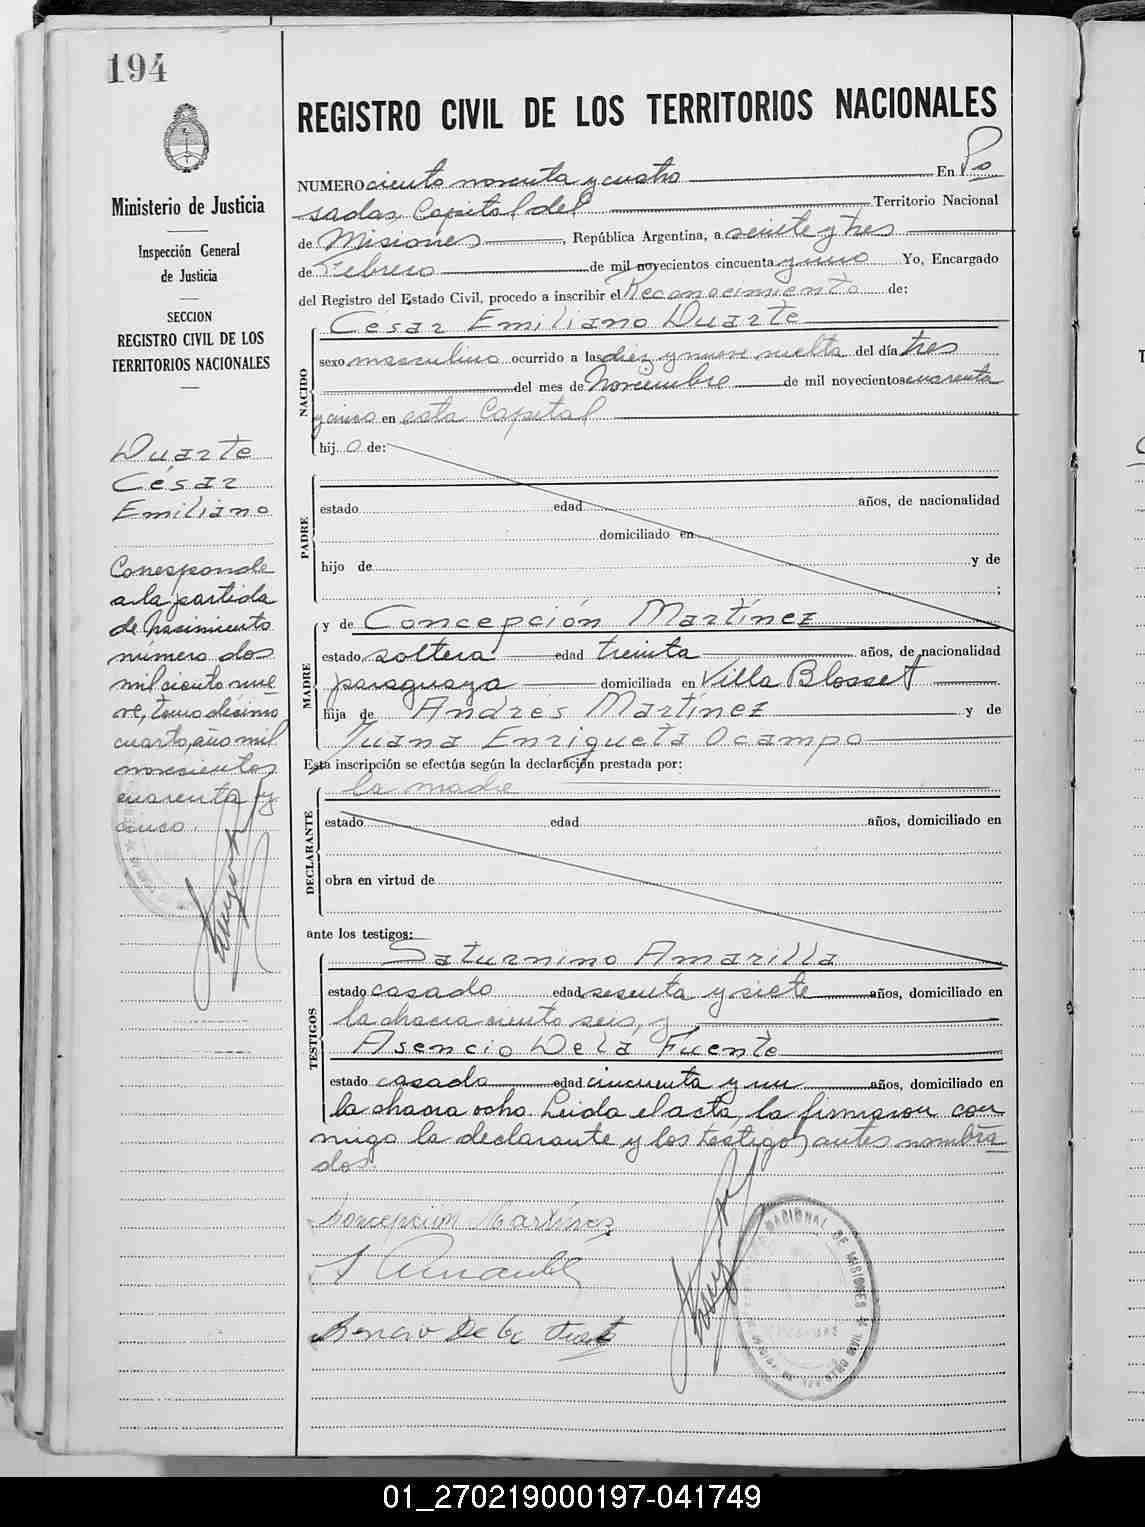 194
Ministerio de Justicia
Inspección General
de Justicia
SECCION
REGISTRO CIVIL DE LOS
TERRITORIOS NACIONALES
Duarte
César
Emiliano
Corresponde
a la partida
de nacimiento
número dos
mil ciento nue
ve, tomo décimo
cuarto, año mil
novecientos
cuarenta y
cinco.
REGISTRO CIVIL DE LOS TERRITORIOS NACIONALES
NUMERO ciento noventa y cuatro En Po
sadas, Capital del Territorio Nacional
de Misiones, República Argentina, a veinte y tres
de Febrero de mil novecientos cincuenta y uno Yo, Encargado
del Registro del Estado Civil, procedo a inscribir el Reconocimiento de:
NACIDO
César Emiliano Duarte
sexo masculino ocurrido a las diez y nueve vuelta del día tres
del mes de Noviembre de mil novecientos cuarenta
y cinco en esta Capital
hij o de:
PADRE
estado edad años, de nacionalidad
domiciliado en
hijo de y de
;
MADRE
y de Concepción Martínez
estado soltera edad treinta años, de nacionalidad
paraguaya domiciliada en Villa Blosset
hija de Andrés Martínez y de
Juana Enriqueta Ocampo
Esta inscripción se efectúa según la declaración prestada por:
DECLARANTE
la madre
estado edad años, domiciliado en
obra en virtud de
ante los testigos:
TESTIGOS
Saturnino Amarilla
estado casado edad sesenta y siete años, domiciliado en
la chacra ciento seis, y
Asencio De la Fuente
estado casado edad cincuenta y un años, domiciliado en
la chacra ocho. Leída el acta, la firmaron con
migo la declarante y los testigos antes nombra
dos.
Concepción Martínez
NACIONAL DE MISIONES
01_270219000197-041749